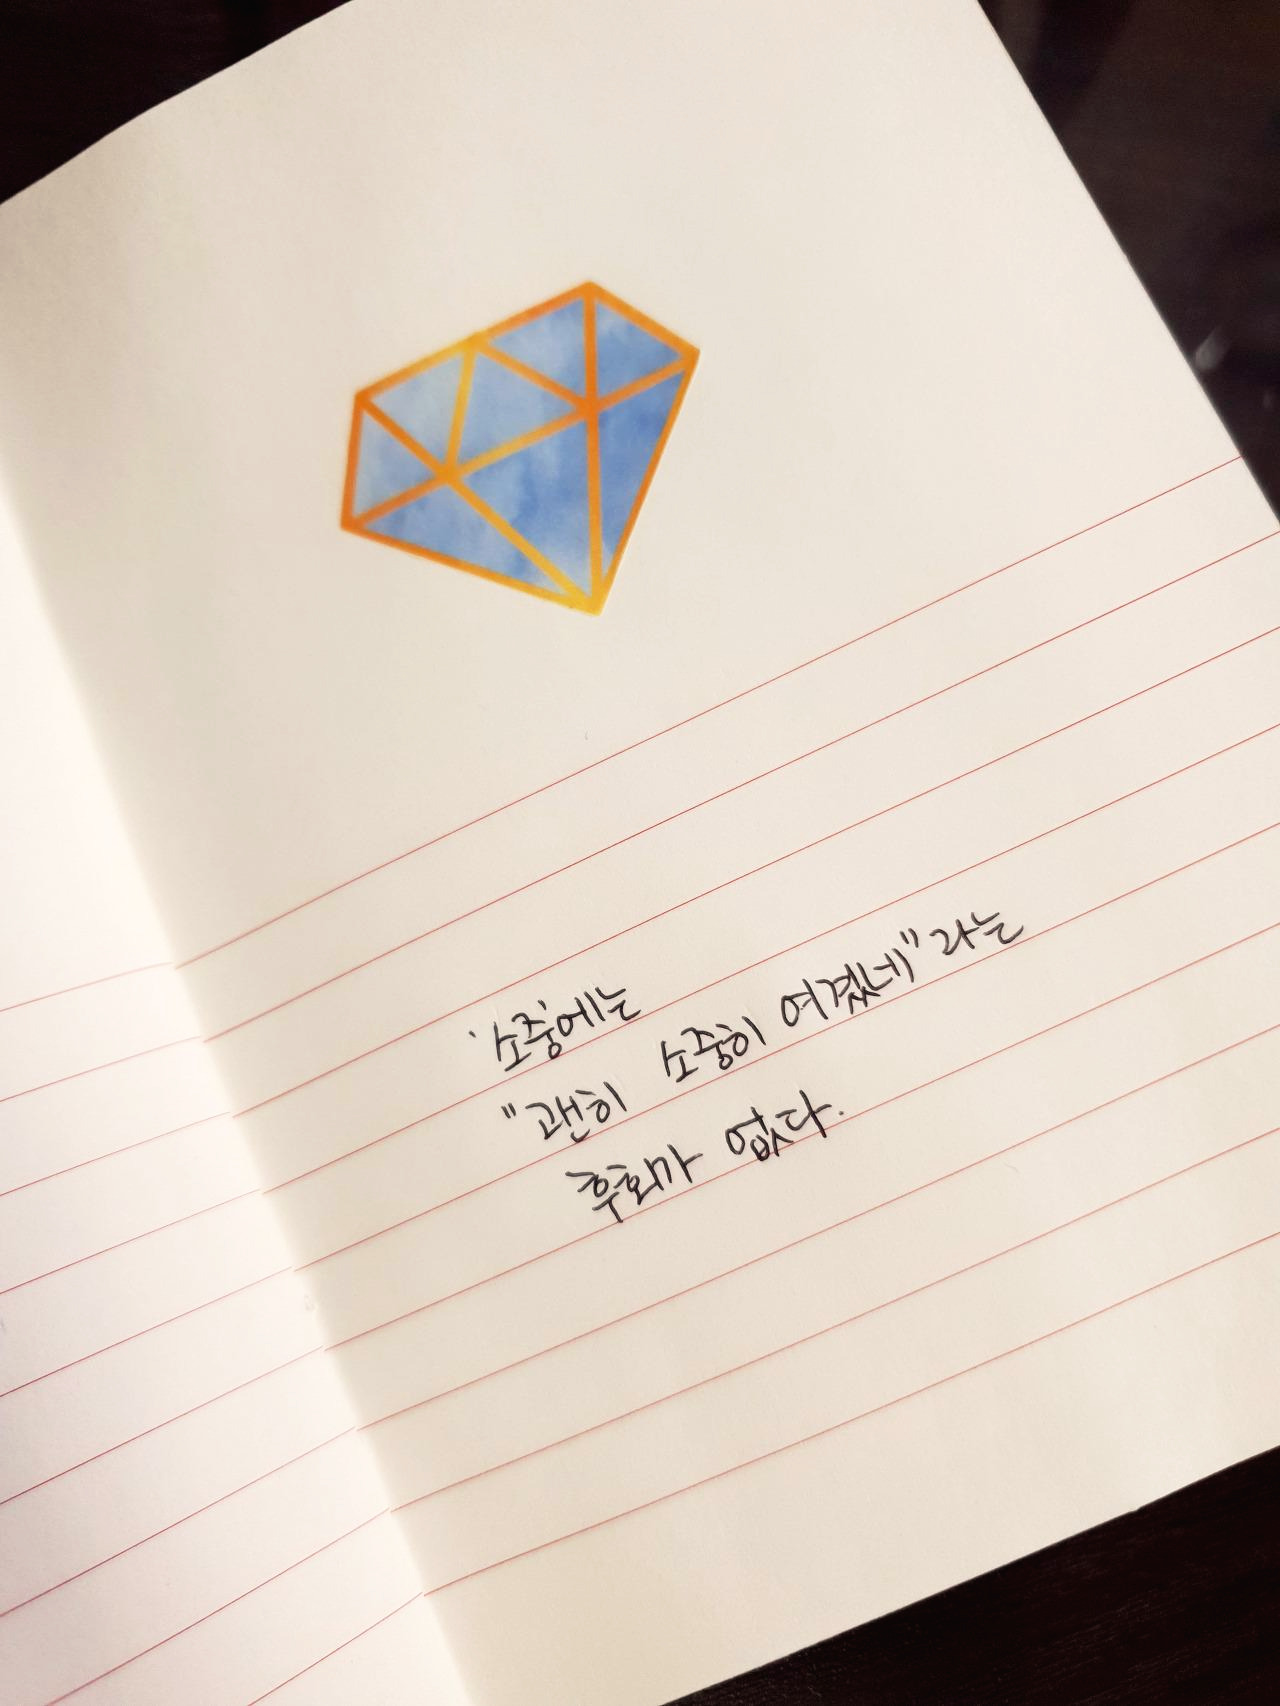 '소중'에는
"괜히 소중히 여겼네"라는
후회가 없다.